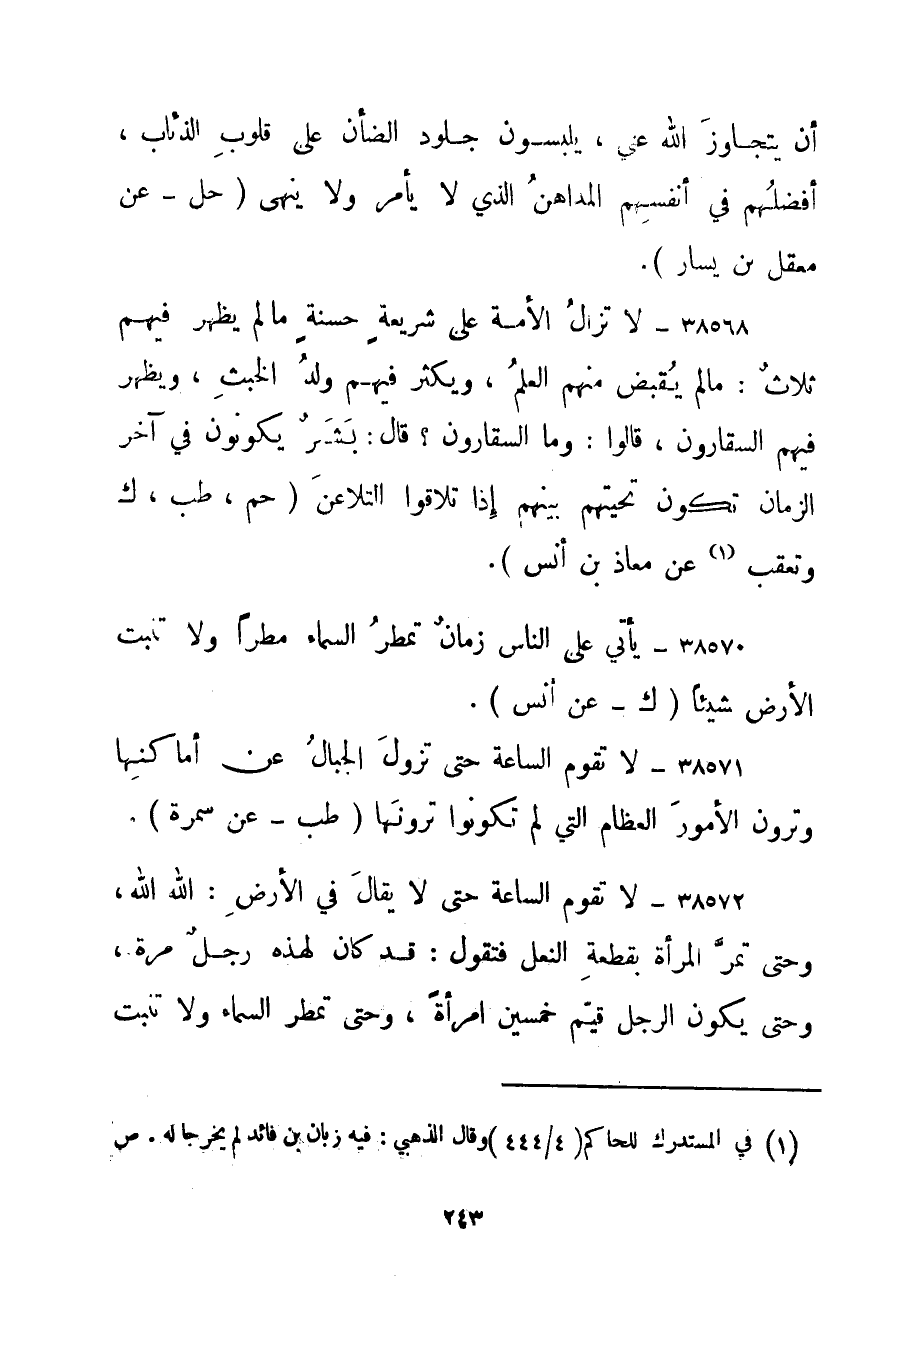 أن يتجاوزَ الله عني ، يلبسون جلود الضأن على قلوبِ الذئاب ،
أفضلُهم في أنفسِهم المداهنُ الذي لا يأمر ولا ينهى ( حل - عن
معقل بن يسار ).
٣٨٥٦٨ - لا تزالُ الأمة على شريعةٍ حسنةٍ مالم يظهر فيهم
ثلاثٌ : مالم يُقبض منهم العلمُ ، ويكثر فيهم ولدُ الخبثِ ، ويظهر
فيهم السقارون ، قالوا : وما السقارون ؟ قال : بَشَرٌ يكونون في آخر
الزمان تكون تحيتهم بينهم إذا تلاقوا التلاعنَ ( حم ، طب ، ك
وتعقب (١) عن معاذ بن أنس ).
٣٨٥٧٠ - يأتي على الناس زمانٌ تمطرُ السماء مطراً ولا تنبت
الأرض شيئاً ( ك - عن أنس ) .
٣٨٥٧١ - لا تقوم الساعة حتى تزولَ الجبالُ عن أماكنِها
وترون الأمورَ العظام التي لم تكونوا ترونَها ( طب - عن سمرة ) .
٣٨٥٧٢ - لا تقوم الساعة حتى لا يقالَ في الأرضِ : الله الله ،
وحتى تمرَّ المرأة بقطعةِ النعل فتقول : قد كان لهذه رجلٌ مرة ،
وحتى يكون الرجل قيّم خمسين امرأةً ، وحتى تمطر السماء ولا تنبت
(١) في المستدرك للحاكم ( ٤/٤٤٤ ) وقال الذهبي : فيه زبان بن فائد لم يخرجا له . ص
٢٤٣